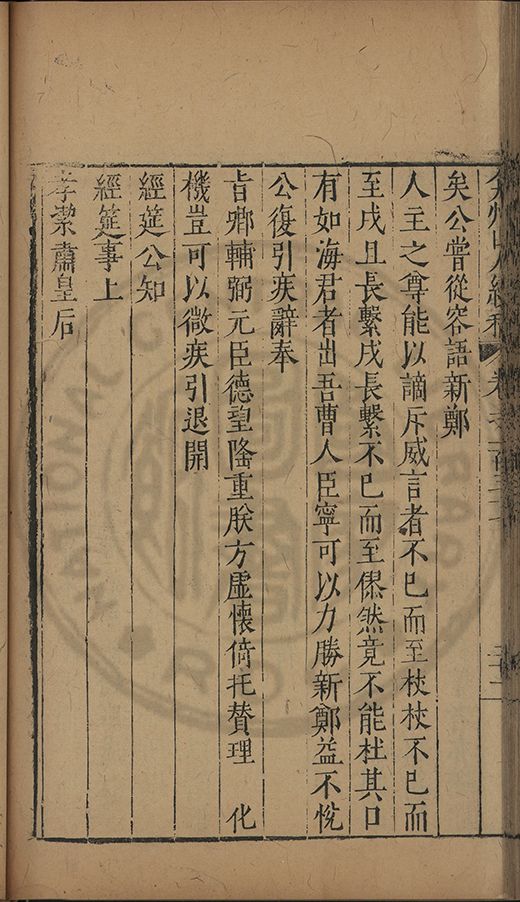 矣公嘗從容語新鄭
人主之尊能以謫斥威言者不已而至杖杖不已而
至戍且長繫戍長繫不已而至僇然竟不能杜其口
有如海君者出吾曹人臣寧可以力勝新鄭益不悅
公復引疾辭奉
旨卿輔弼元臣德望隆重朕方虛懷倚托贊理 化
機豈可以微疾引退開
經筵公知
經筵事上
孝潔肅皇后